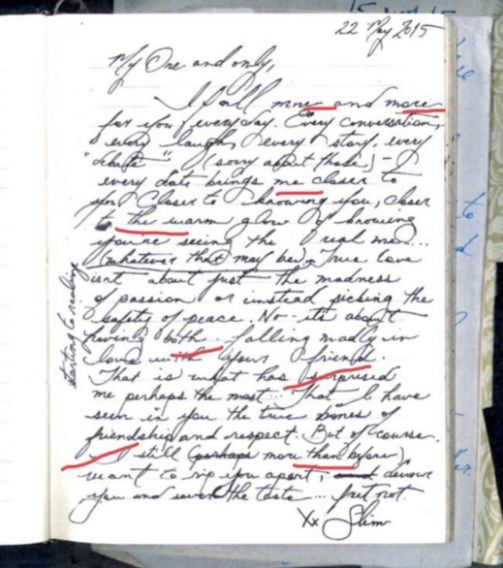 22 May 2015
My One and only,
I fall more and more
for you everyday. Every conversation,
every laugh, every story, every
"debate" (sorry about those) -
every date brings me closer to
you. Closer to knowing you, closer
to the warm glow of knowing
you're seeing the real me...
(whatever that may be). True love
isnt about just the madness
of passion or instead picking the
safety of peace. No - its about
having both. falling madly in
love with your friend.
starting to realize
That is what has surprised
me perhaps the most... That I have
seen in you the true bones of
friendship and respect. But of course.
I still (perhaps more than before)
want to rip you apart, and devour
you and savor the taste... fret not.
Xx Slim